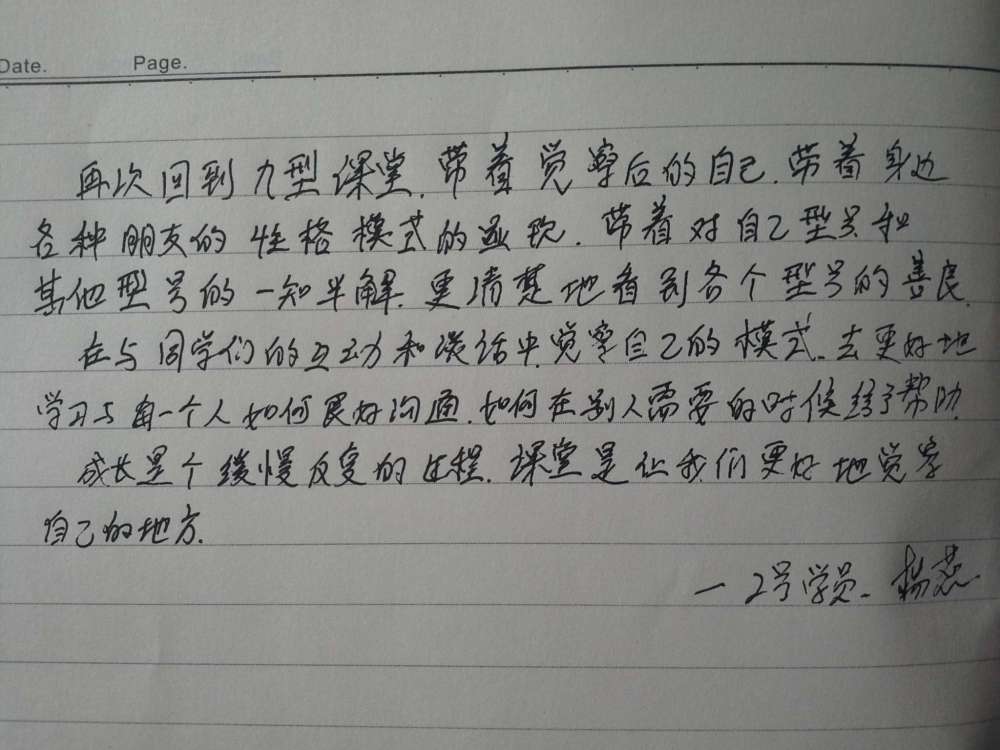 Date. Page.
再次回到九型课堂.带着觉察后的自己.带着身边
各种朋友的性格模式的呈现.带着对自己型号和
其他型号的一知半解.更清楚地看到各个型号的善良.
在与同学们的互动和谈话中.觉察自己的模式.去更好地
学习与每一个人如何良好沟通.如何在别人需要的时候给予帮助.
成长是个缓慢反复的过程.课堂是让我们更好地觉察
自己的地方.
一2号学员.杨燕